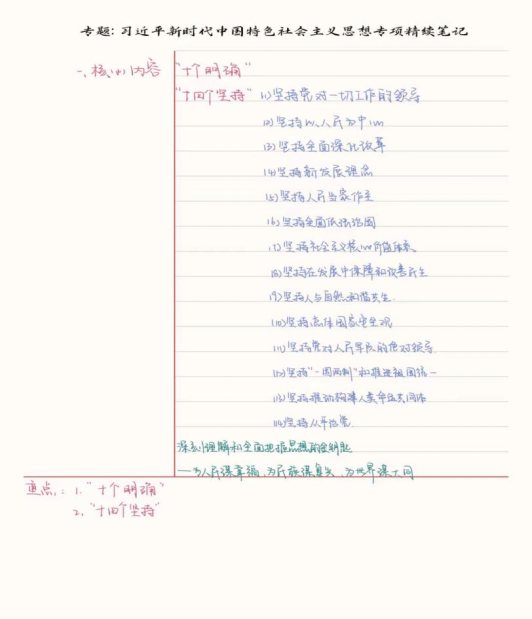 专题: 习近平新时代中国特色社会主义思想专项精续笔记
一、核心内容 "十个明确"
"十四个坚持" (1)坚持党对一切工作的领导
(2)坚持以人民为中心
(3)坚持全面深化改革
(4)坚持新发展理念
(5)坚持人民当家作主
(6)坚持全面依法治国
(7)坚持社会主义核心价值体系。
(8)坚持在发展中保障和改善民生
(9)坚持人与自然和谐共生.
(10)坚持总体国家安全观
(11)坚持党对人民军队的绝对领导
(12)坚持"一国两制"和推进祖国统一
(13)坚持推动构建人类命运共同体
(14)坚持从严治党.
深刻理解和全面把握思想的金钥匙
——为人民谋幸福,为民族谋复兴,为世界谋大同
重点: 1. "十个明确"
2. "十四个坚持"